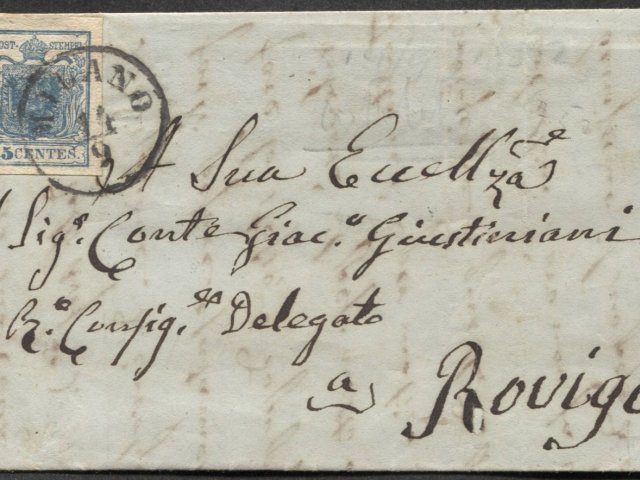 POST-STEMPEL
5 CENTES.
MILANO
14
9
A Sua Eccellza
Sigr Conte Giac.o Giustiniani
R.o Consigre Delegato
a Rovigo